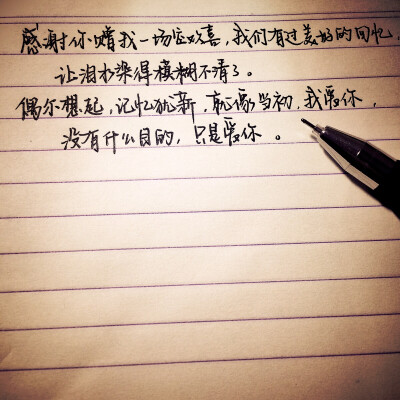 感谢你赠我一场空欢喜，我们有过美好的回忆，
让泪水染得模糊不清了。
偶尔想起，记忆犹新，就像当初，我爱你，
没有什么目的，只是爱你。